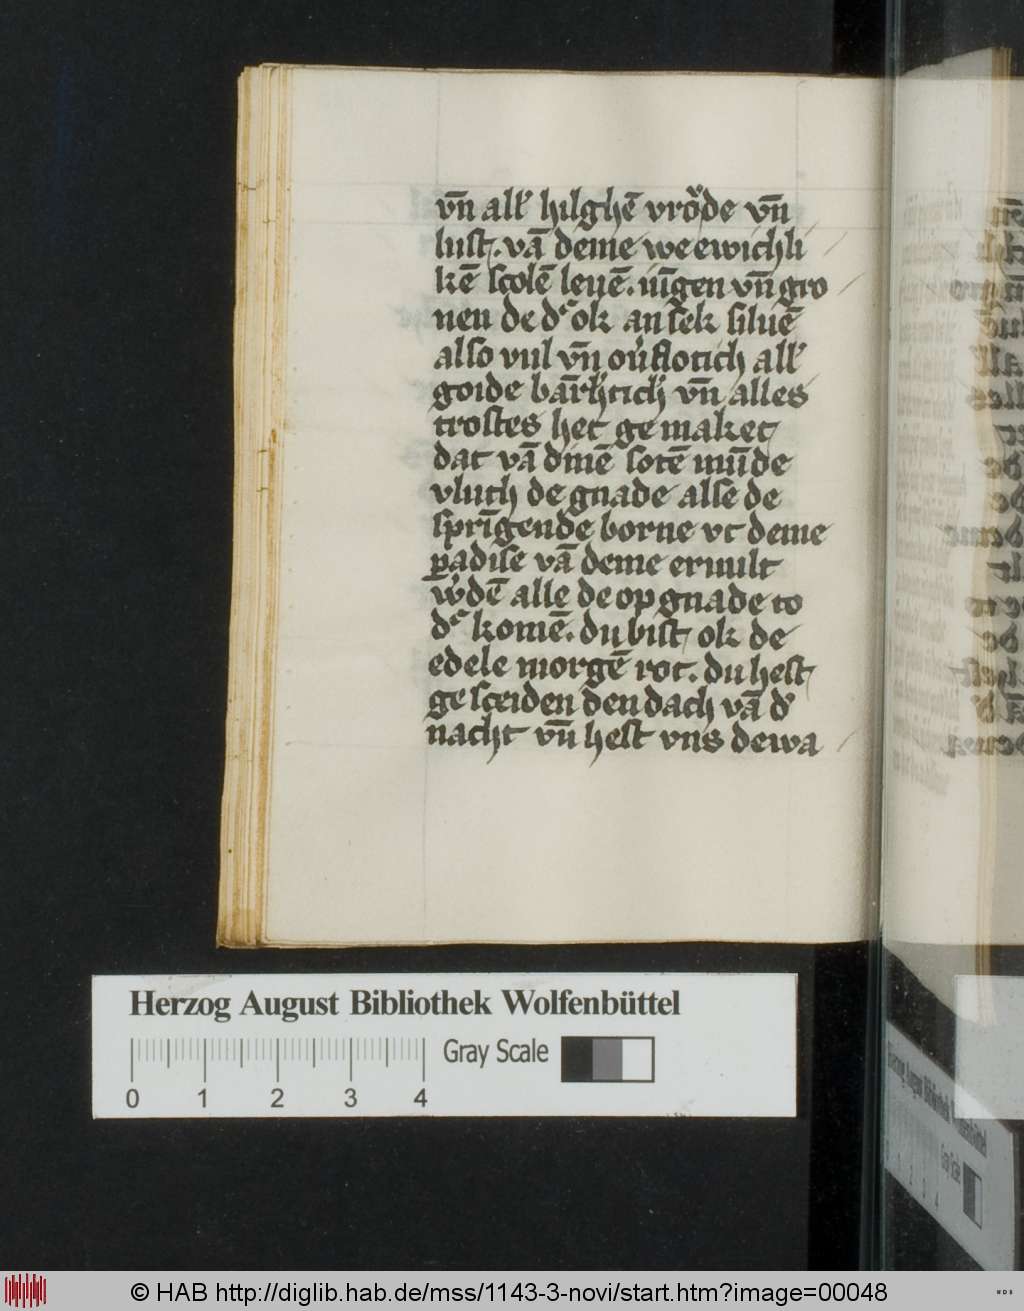 vn̄ all' hilghē vrǒde vn̄
lust. vā deme we ewichli
kē scolē leuē. iūgen vn̄ gro
nen de d' ok an sek siluē
also vul vn̄ ou'flotich all'
goide bārh'tich' vn̄ alles
trostes het ge maket
dat vā dinē sotē mūde
vluth de gnade alse de
sprīgende borne vt deme
ꝑadise vā deme ervult
w'dē alle de op gnade to
d' komē. du bist ok de
edele morgē rot. du hest
ge sceiden den dach vā d'
nacht vn̄ hest vns dewa
Herzog August Bibliothek Wolfenbüttel
Gray Scale
0 1 2 3 4
© HAB http://diglib.hab.de/mss/1143-3-novi/start.htm?image=00048